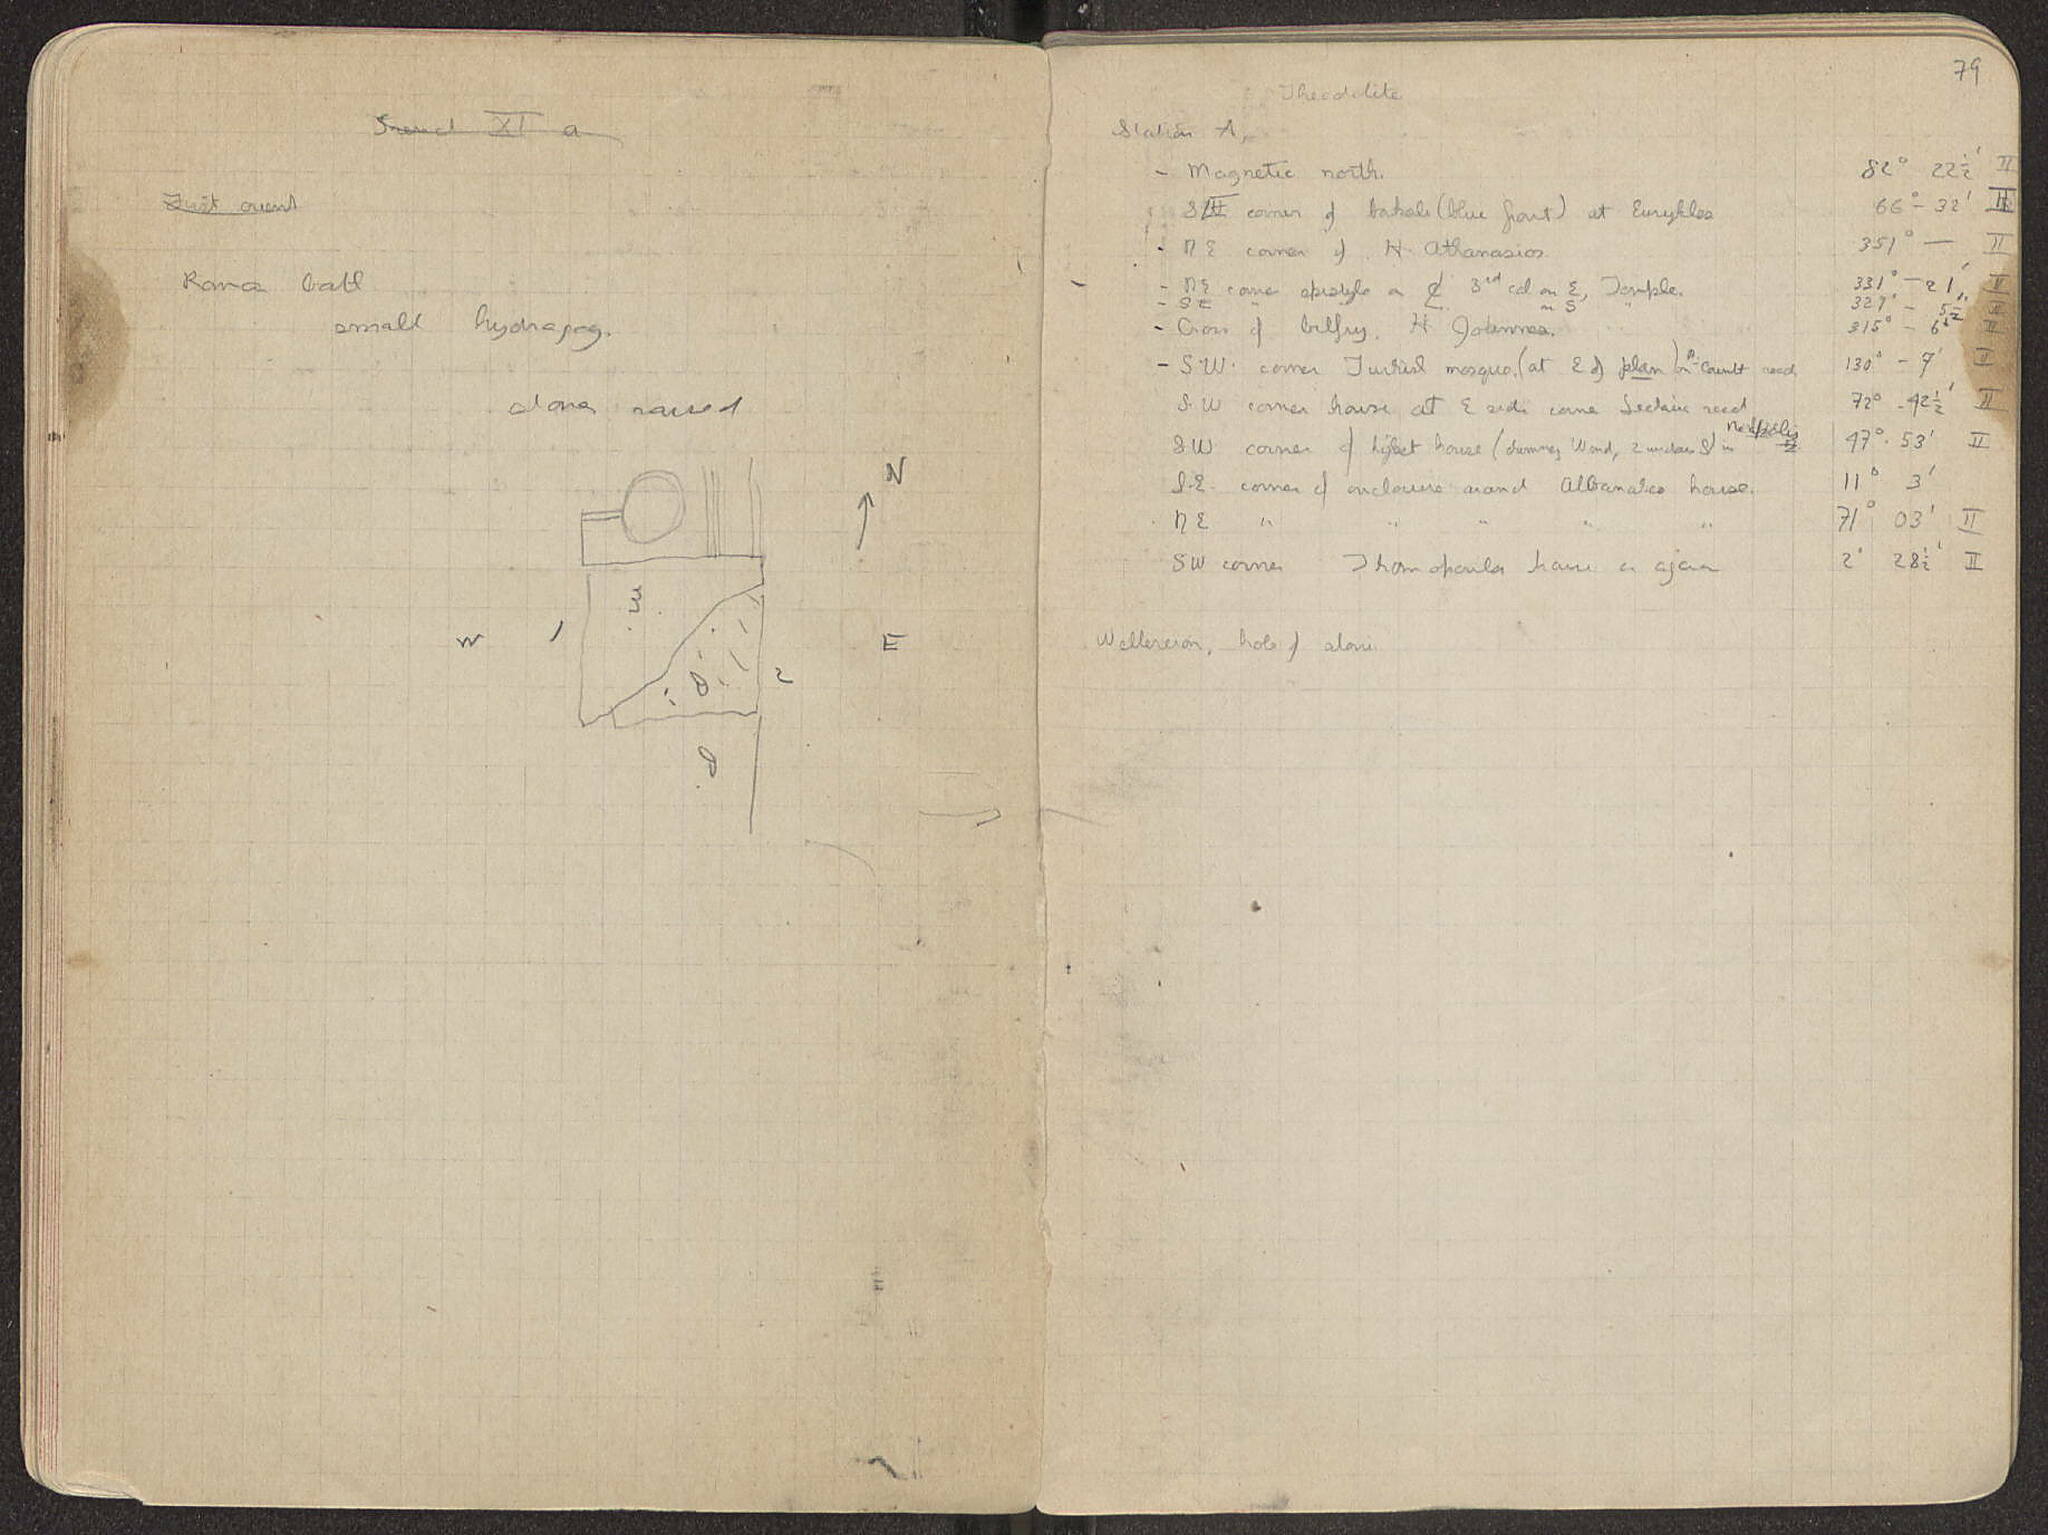 Trench XI a
Just ouest
Roman bath
small hydragog.
stones raised
N
W
1
E
2
79
Theodolite
Station A,
- Magnetic north. 82° 22½' II
corner of bakali (blue front) at Eurykles 66° - 32'
- NE corner of H. Athanasios 351° — II
- NE corner epistyle on 3rd col on E, Temple. 331° - 21' II
- SE " " on S " 327° - 5½' II
- Cross of belfry. H. Johannes. 315° - 6' II
- S.W. corner Turkish mosque. (at E of plan) on Corinth road 130° - 7' II
S.W corner house at E side corner road 72° - 42½' II
SW corner of highest house ( 2 windows S) in 47°. 53' II
S.E. corner of enclosure around house. 11° 3'
NE " " " " " 71° 03' II
SW corner house 2° 28½' II
hole of stone